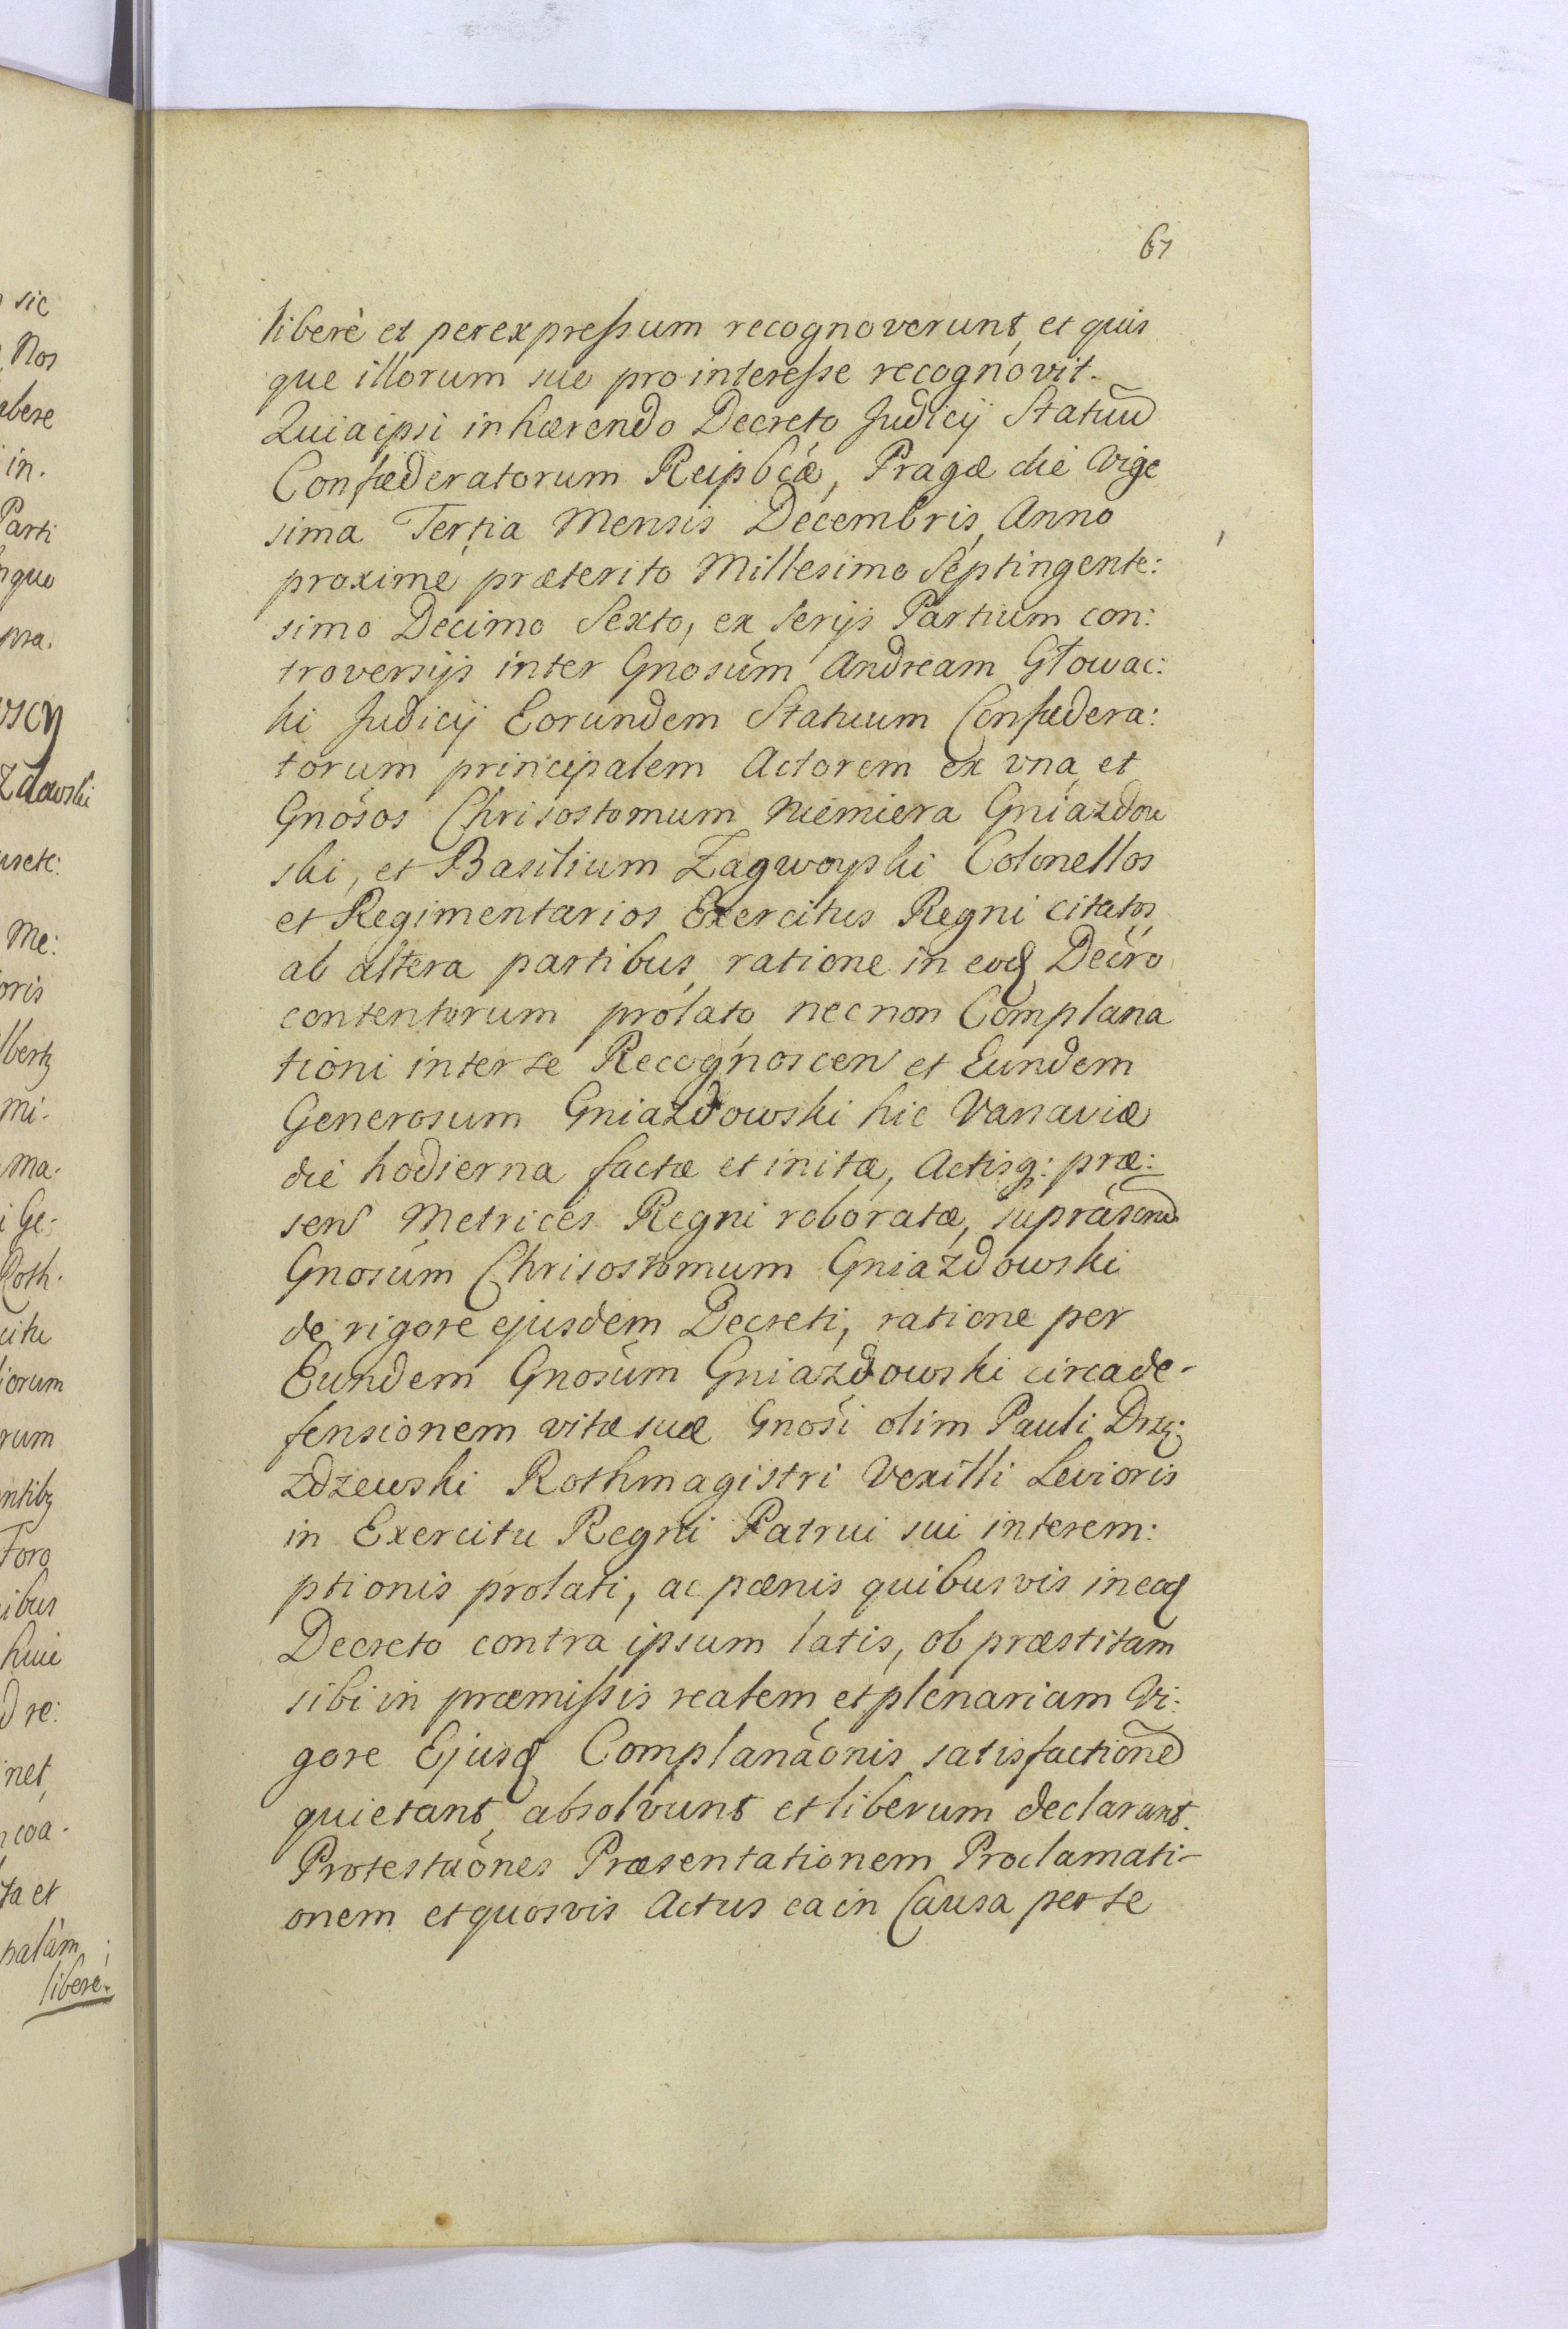 67
liberè et per expressum recognoverunt, et quis
que illorum suo pro interesse recognovit.
Quia ipsi inhærendo Decreto Judicij Statuũ
Confœderatorum Reipbcæ, Pragæ die Vige
sima Tertia Mensis Decembris, Anno
proxime præterito Millesimo Septingente:
simo Decimo Sexto, ex serijs Partium con:
troversijs inter Gnosum Andream Głowac:
ki Judicij Eorundem Statuum Confœdera:
torum principalem Actorem ex una, et
Gnosos Chrisostomum Niemiera Gniazdow
ski, et Basilium Zagwoyski Colonellos
et Regimentarios Exercitus Regni citatos,
ab altera partibus, ratione in eod Decro
contentorum prolato, nec non Complana
tioni inter se Recognoscen et Eundem
Generosum Gniazdowski hic Varsaviæ
die hodierna factæ et initæ, Actisq: præ:
sen Metrices Regni roboratæ, suprascrip
Gnosum Chrisostomum Gniazdowski
de rigore ejusdem Decreti, ratione per
Eundem Gnosum Gniazdowski circa de-
fensionem vitæ suæ Gnosi olim Pauli Drzy:
zdzewski Rothmagistri Vexilli Levioris
in Exercitu Regni Patrui sui interem:
ptionis prolati, ac pœnis quibusvis in eod
Decreto contra ipsum latis, ob præstitam
sibi in præmissis realem et plenariam Vi:
gore Ejusd Complanaonis satisfactionẽ
quietant, absolvunt et liberum declarant.
Protestaones Præsentationem Proclamati-
onem et quosvis Actus ea in Causa per se
sic
Nos
in.
Parti
zdowski
Me:
oris
mi.
ma.
Ge:
Roth.
iorum
rum
Foro
ibus
net
coa-
ta et
palàm
liberè.